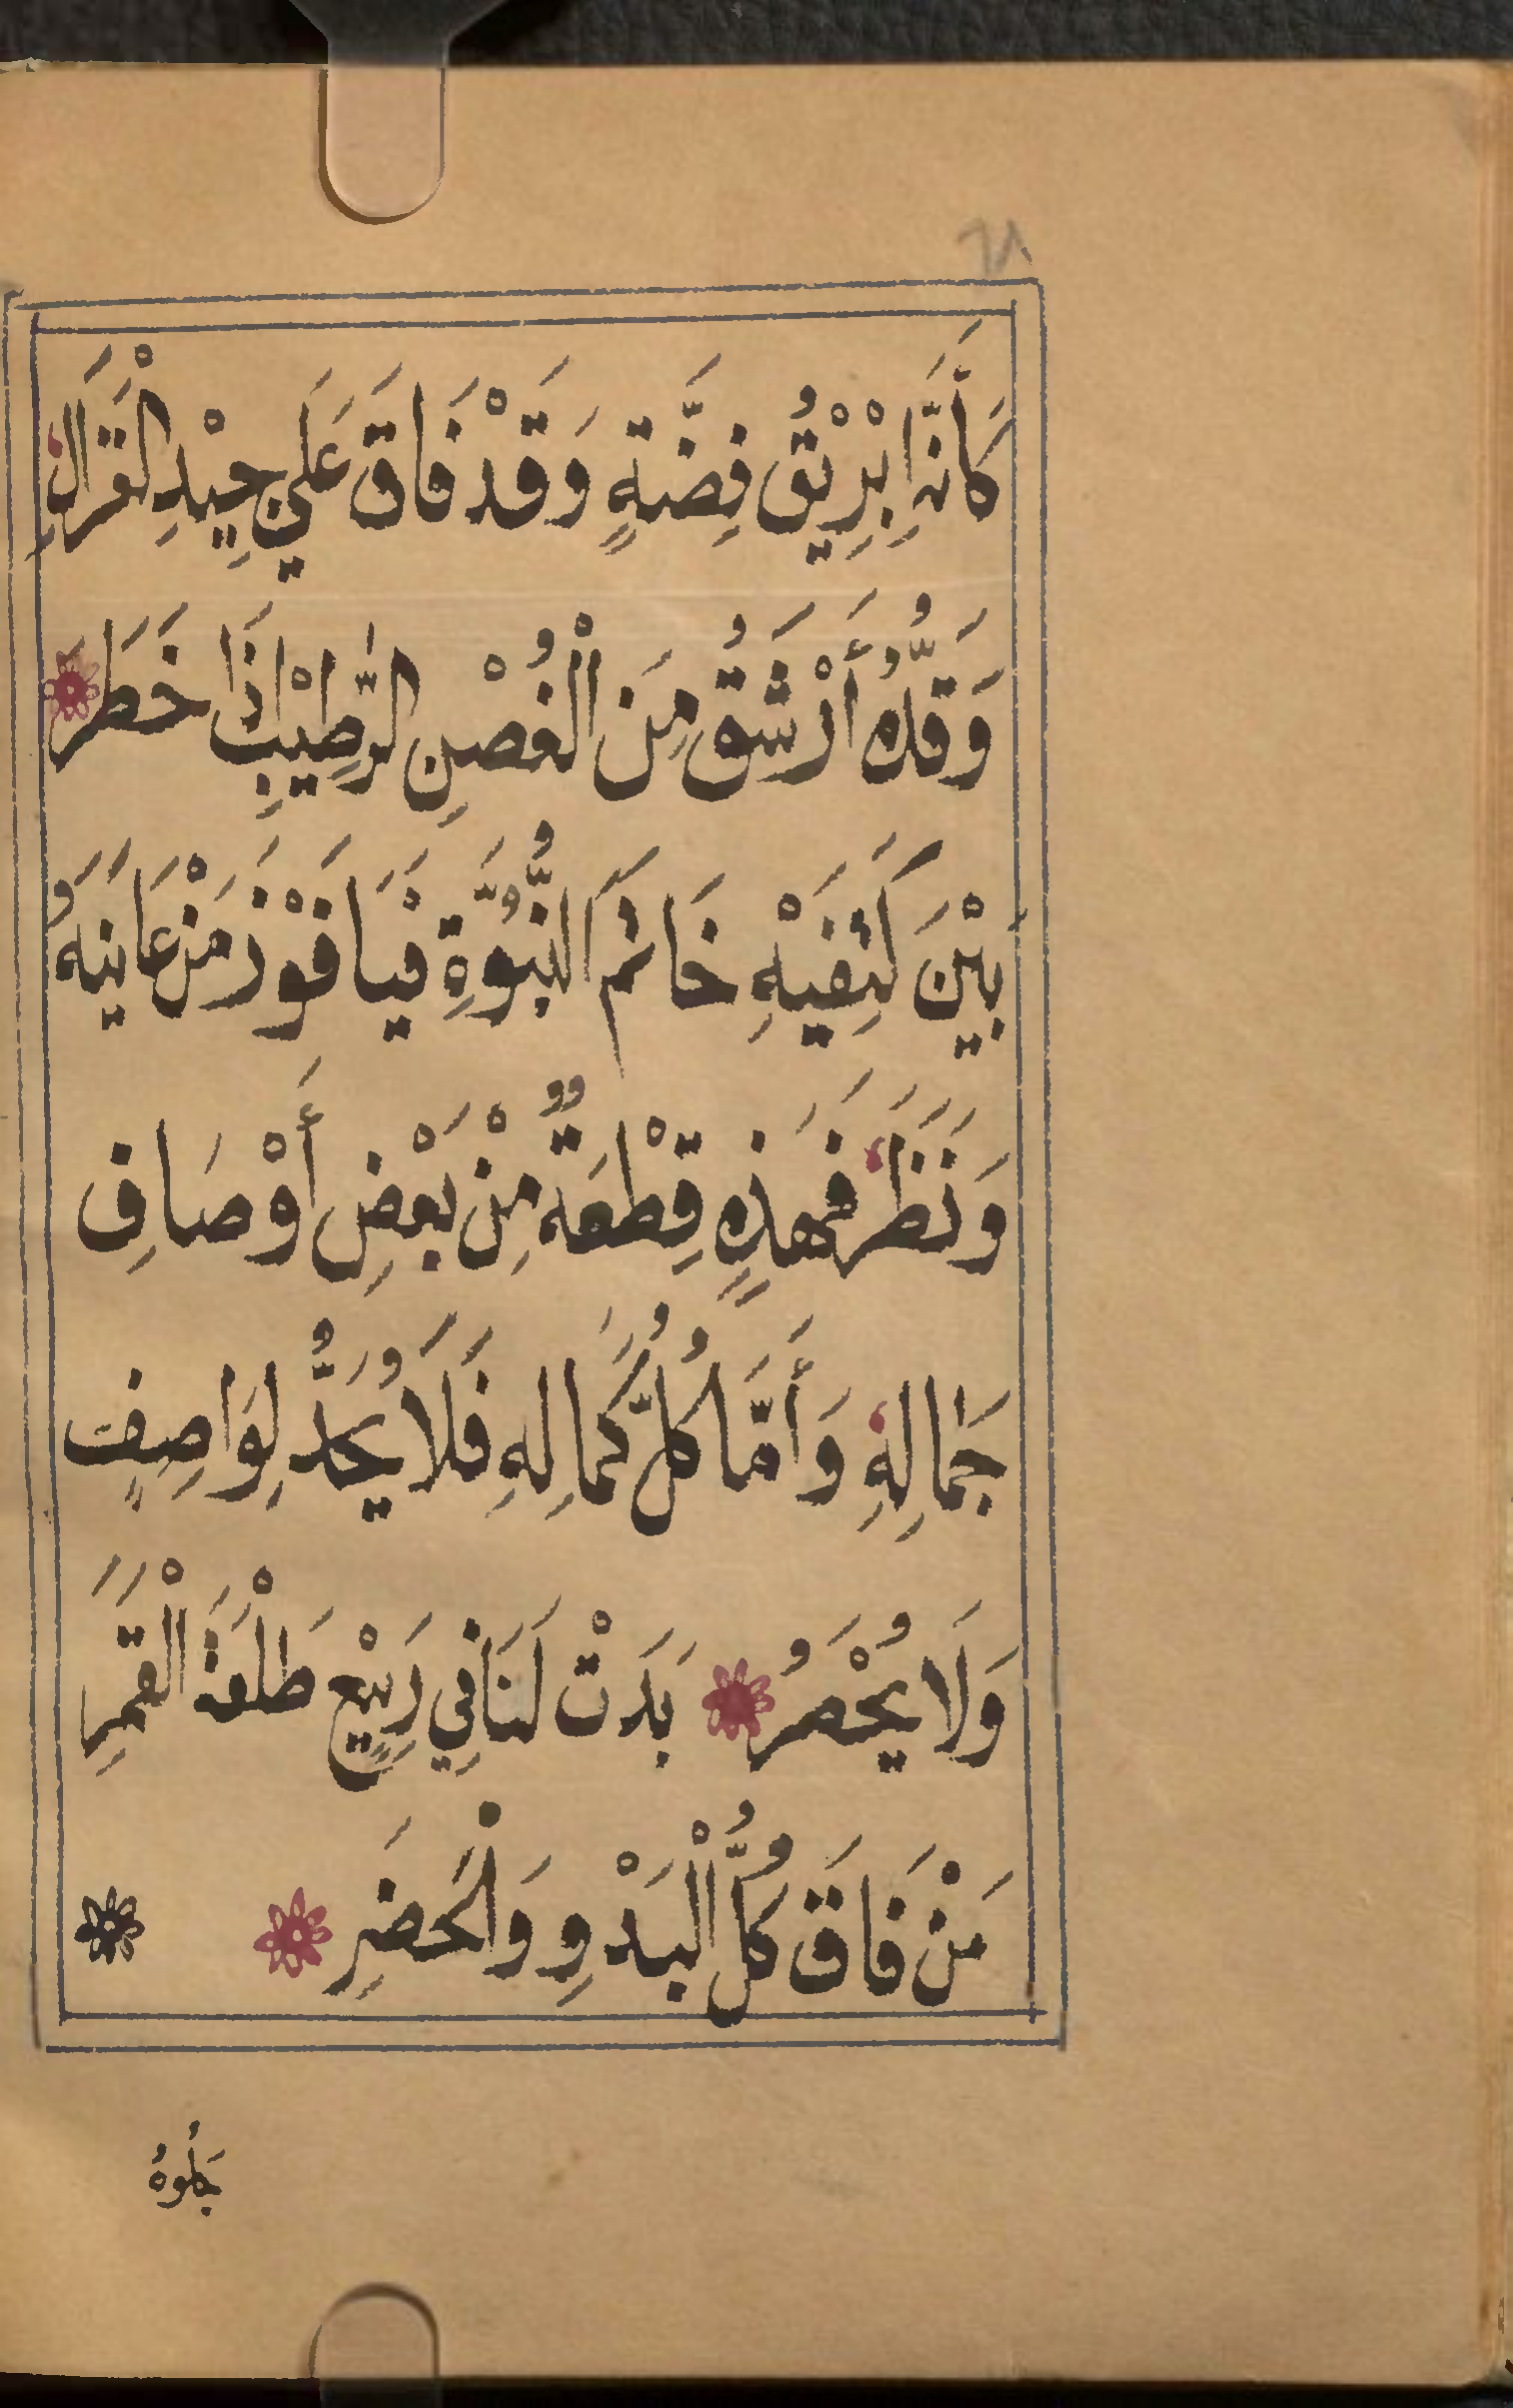 ٦٨
كَأَنَّ اِبْرِيْقُ فِضَّةٍ وَقَدْ فَاقَ عَلَي جِيْدِ الْقَزَالِ
وَقَدُّهُ أَرْشَقُ مِنَ الْغُصْنِ الرَّطِيْبِ اِذَا خَطَرَ
بَيْنَ كَتِفَيْهِ خَاتَمَ النُّبُوَّةِ فَيَا فَوْزَ مَنْ عَايَنَهُ
وَنَظَرَ فَهَذِهِ قِطْعَةٌ مِنْ بَعْضِ أَوْصَافِ
جَمَالِهِ وَأَمَّا كُلُّ كَمَالِهِ فَلَا يُحَدُّ لِوَاصِفٍ
وَلَا يُحْصَرُ بَدَتْ لَنَا فِي رَبِيْعٍ طَلْعَةَ الْقَمَرِ
مَنْ فَاقَ كُلَّ الْبَدْوِ وَالْحَضَرِ